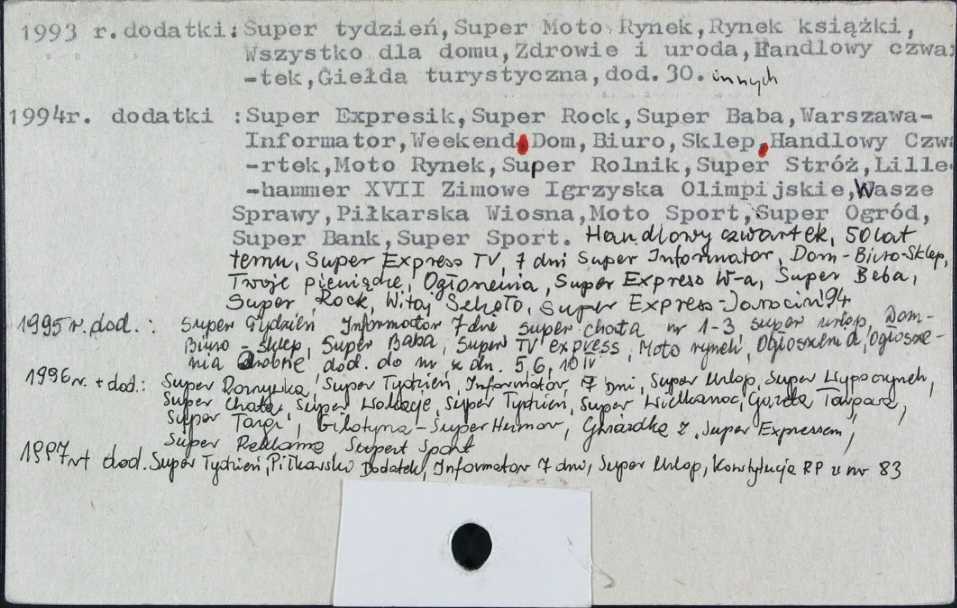 1993 r.dodatki:Super tydzień,Super Moto Rynek,Rynek książki,
Wszystko dla domu,Zdrowie i uroda,Handlowy czwa
-tek,Giełda turystyczna,dod.30. innych
1994r. dodatki :Super Expresik,Super Rock,Super Baba,Warszawa-
Informator,Weekend,Dom,Biuro,Sklep,Handlowy Czwa
-rtek,Moto Rynek,Super Rolnik,Super Stróż,Lille
-hammer XVII Zimowe Igrzyska Olimpijskie,Wasze
Sprawy,Piłkarska Wiosna,Moto Sport,Super Ogród,
Super Bank,Super Sport. Handlowy czwartek, 50 lat
temu, Super Express TV, 7 dni Super Informator, Dom-Biuro-Sklep,
Twoje pieniądze, Ogłoszenia, Super Express W-a, Super Baba,
Super Rock, Witaj Szkoło, Super Express-Jarocin'94
1995r. dod.: Super Tydzień Informator 7 dni super chata nr 1-3 super urlop, Dom-
Biuro-Sklep, Super Baba, Super TV express, Moto rynek, Ogłoszenia, Ogłosze-
nia drobne dod. do nr z dn. 5,6,10 IV
1996r. + dod.: Super Super Tydzień, Informator, 7 Dni, Super Urlop, Super Wypoczynek,
Super Chata, Super Wakacje, Super Tydzień, Super Wielkanoc, Gazeta Targowa,
Super Targi, Gilotyna-Super Humor, Gwiazdka z Super Expressem,
Super Reklama Super Sport
1997r + dod. Super Tydzień, Piłkarski Dodatek, Informator 7 dni, Super Urlop, Konstytucja RP w nr 83